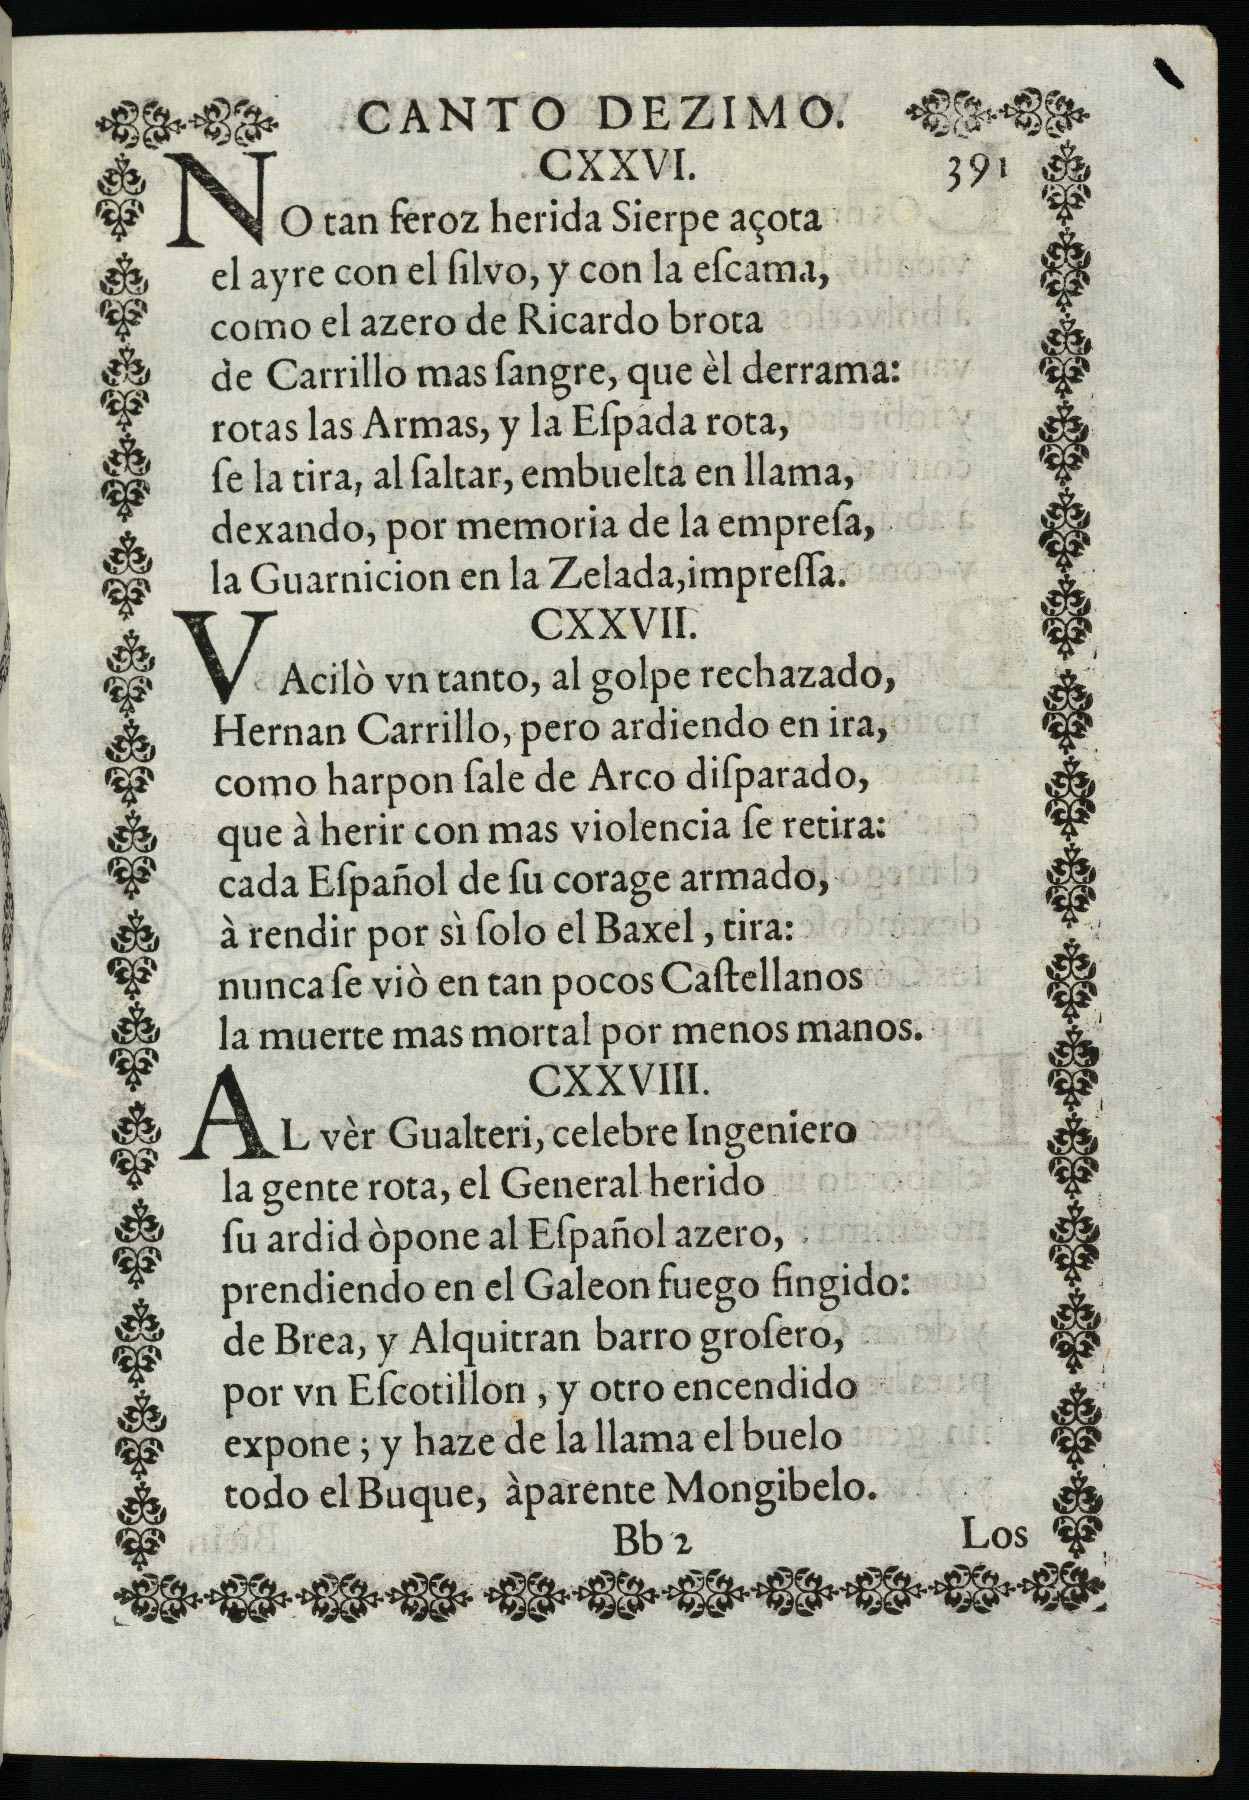 CANTO DEZIMO.
CXXVI. 391
NO tan feroz herida Sierpe açota
el ayre con el ſilvo, y con la eſcama,
como el azero de Ricardo brota
de Carrillo mas ſangre, que èl derrama:
rotas las Armas, y la Eſpada rota,
ſe la tira, al ſaltar, embuelta en llama,
dexando, por memoria de la empreſa,
la Guarnicion en la Zelada, impreſſa.
CXXVII.
VAcilò vn tanto, al golpe rechazado,
Hernan Carrillo, pero ardiendo en ira,
como harpon ſale de Arco diſparado,
que à herir con mas violencia ſe retira:
cada Eſpañol de ſu corage armado,
à rendir por sì ſolo el Baxel, tira:
nunca ſe viò en tan pocos Caſtellanos
la muerte mas mortal por menos manos.
CXXVIII.
AL vèr Gualteri, celebre Ingeniero
la gente rota, el General herido
ſu ardid òpone al Eſpañol azero,
prendiendo en el Galeon fuego fingido:
de Brea, y Alquitran barro groſero,
por vn Eſcotillon, y otro encendido
expone; y haze de la llama el buelo
todo el Buque, àparente Mongibelo.
Bb 2 Los